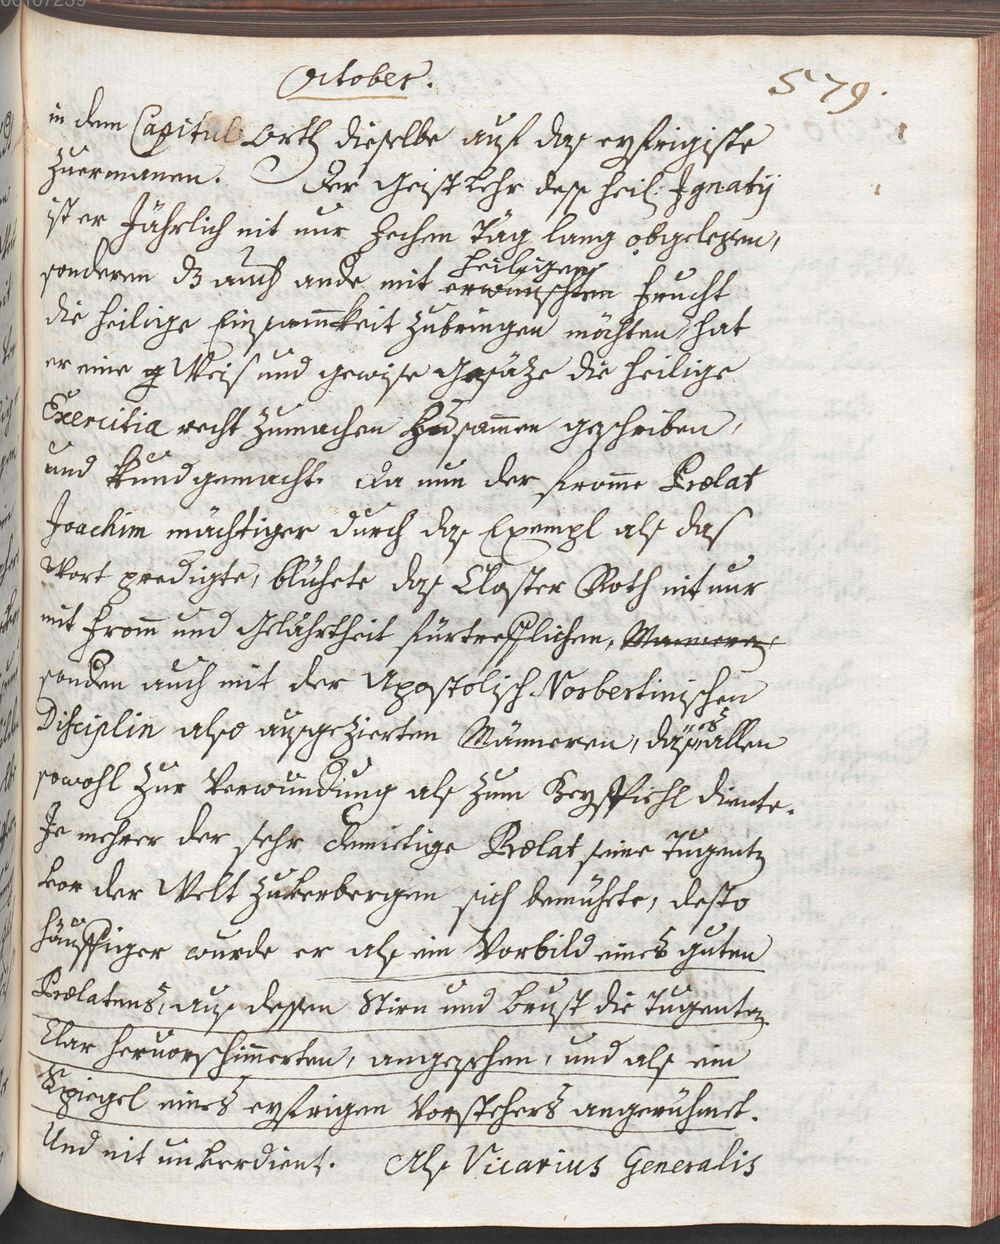 October.
579.
in dem Capitul orth dieselbe auf das eyfrigiste
zuermanen. Der Geist Lehr dess heil: Ignatij
ist er Jährlich nit nur zechen Täg lang obgelegen,
sonderen dz auch ande mit heiligen
erwunschten Frucht
die heilige Einsamkeit zubringen möchten hat
er eine Weis und gewise Gesätze die heilige
Exercitia recht zumachen zusammen geschriben,
und kund gemacht. Da nun der fromme Prælat
Joachim mächtiger durch das Exempl als das
Wort predigte, blühete das Closter Roth nit nur
mit From und Gelährtheit fürtrefflichen, Männeren,
sonden auch mit der Apostolisch-Norbertinischen
Disciplin also ausgezierten Männeren, dass es allen
sowohl zur Verwundung als zum Beyspihl diente.
Je mehrer der sehr demietige Prælat seine Tugentn
vor der Welt zuverbergen sich bemühete, desto
häuffiger wurde er als ein Vorbild eines guten
Prælatens, aus dessen Stirn und brust die Tugenten
Clar hervorschimmerten, angesehen, und als ein
Spiegel eines eyfrigen Vorstehers angerühmet.
Und nit unverdient. Als Vicarius Generalis